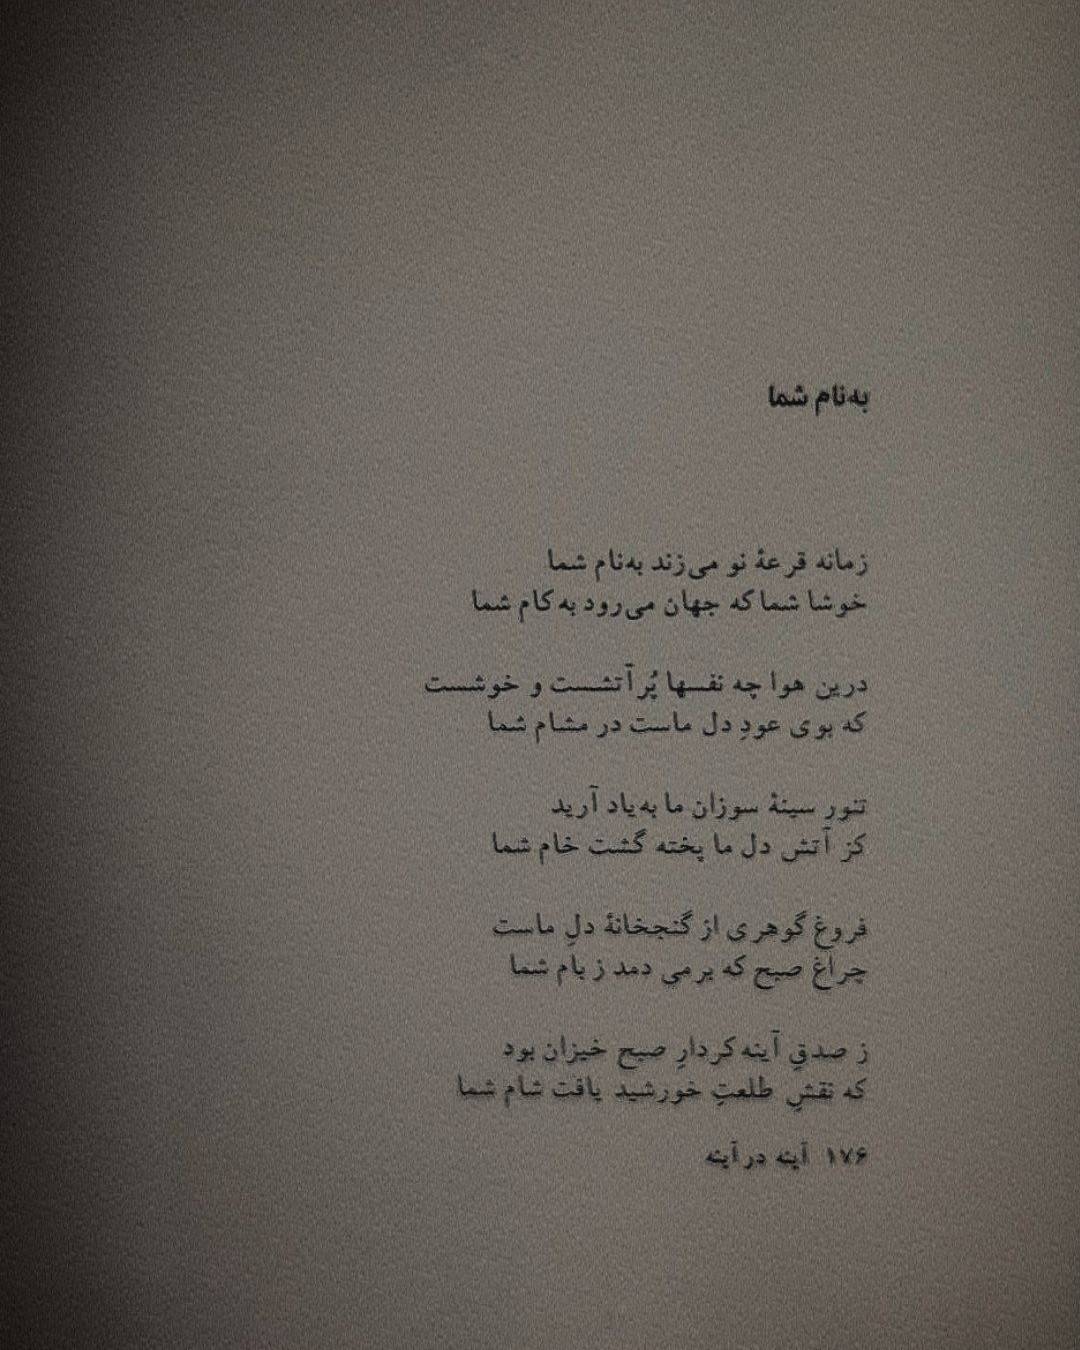 به‌نام شما
زمانه قرعهٔ نو می‌زند به‌نام شما
خوشا شما که جهان می‌رود به کام شما
درین هوا چه نفسها پُر آتشست و خوشست
که بوی عودِ دل ماست در مشام شما
تنور سینهٔ سوزان ما به‌یاد آرید
کز آتش دل ما پخته گشت خام شما
فروغ گوهری از گنجخانهٔ دلِ ماست
چراغ صبح که برمی دمد ز بام شما
ز صدقِ آینه کردارِ صبح خیزان بود
که نقشِ طلعتِ خورشید یافت شام شما
۱۷۶ آینه در آینه